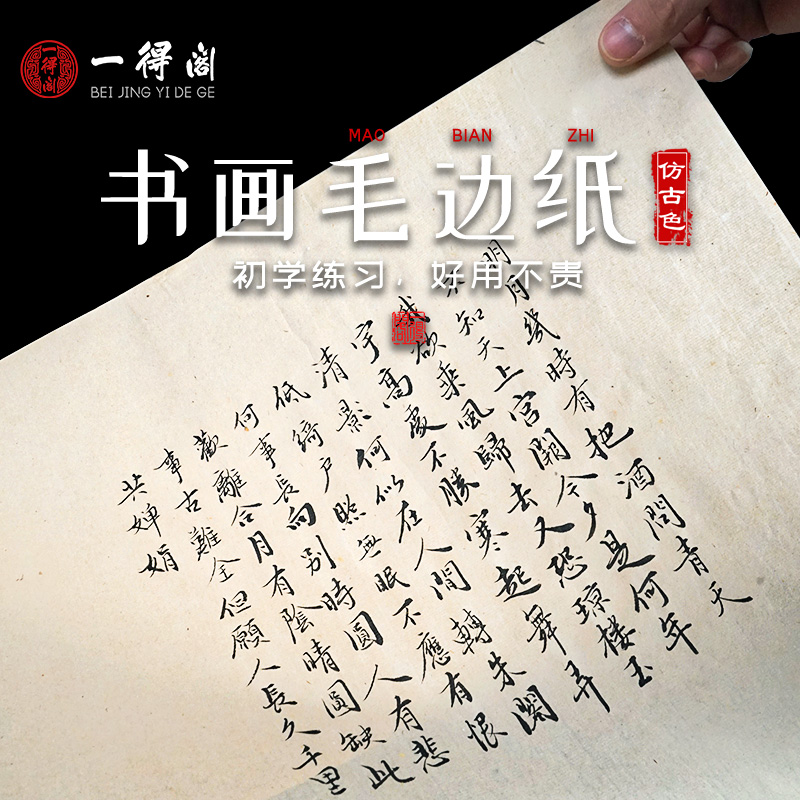 一得阁
一得阁
BEI JING YI DE GE
MAO BIAN ZHI
书画毛边纸
仿古色
初学练习，好用不贵
明月幾時有把酒問青天
不知天上宮闕今夕是何年
我欲乘風歸去又恐琼樓玉
宇高處不勝寒起舞弄
清影何似在人間轉朱閣
低綺户照無眠不應有恨
何事長向別時圓人有悲
歡離合月有陰晴圓缺此
事古難全但願人長久千里
共嬋娟